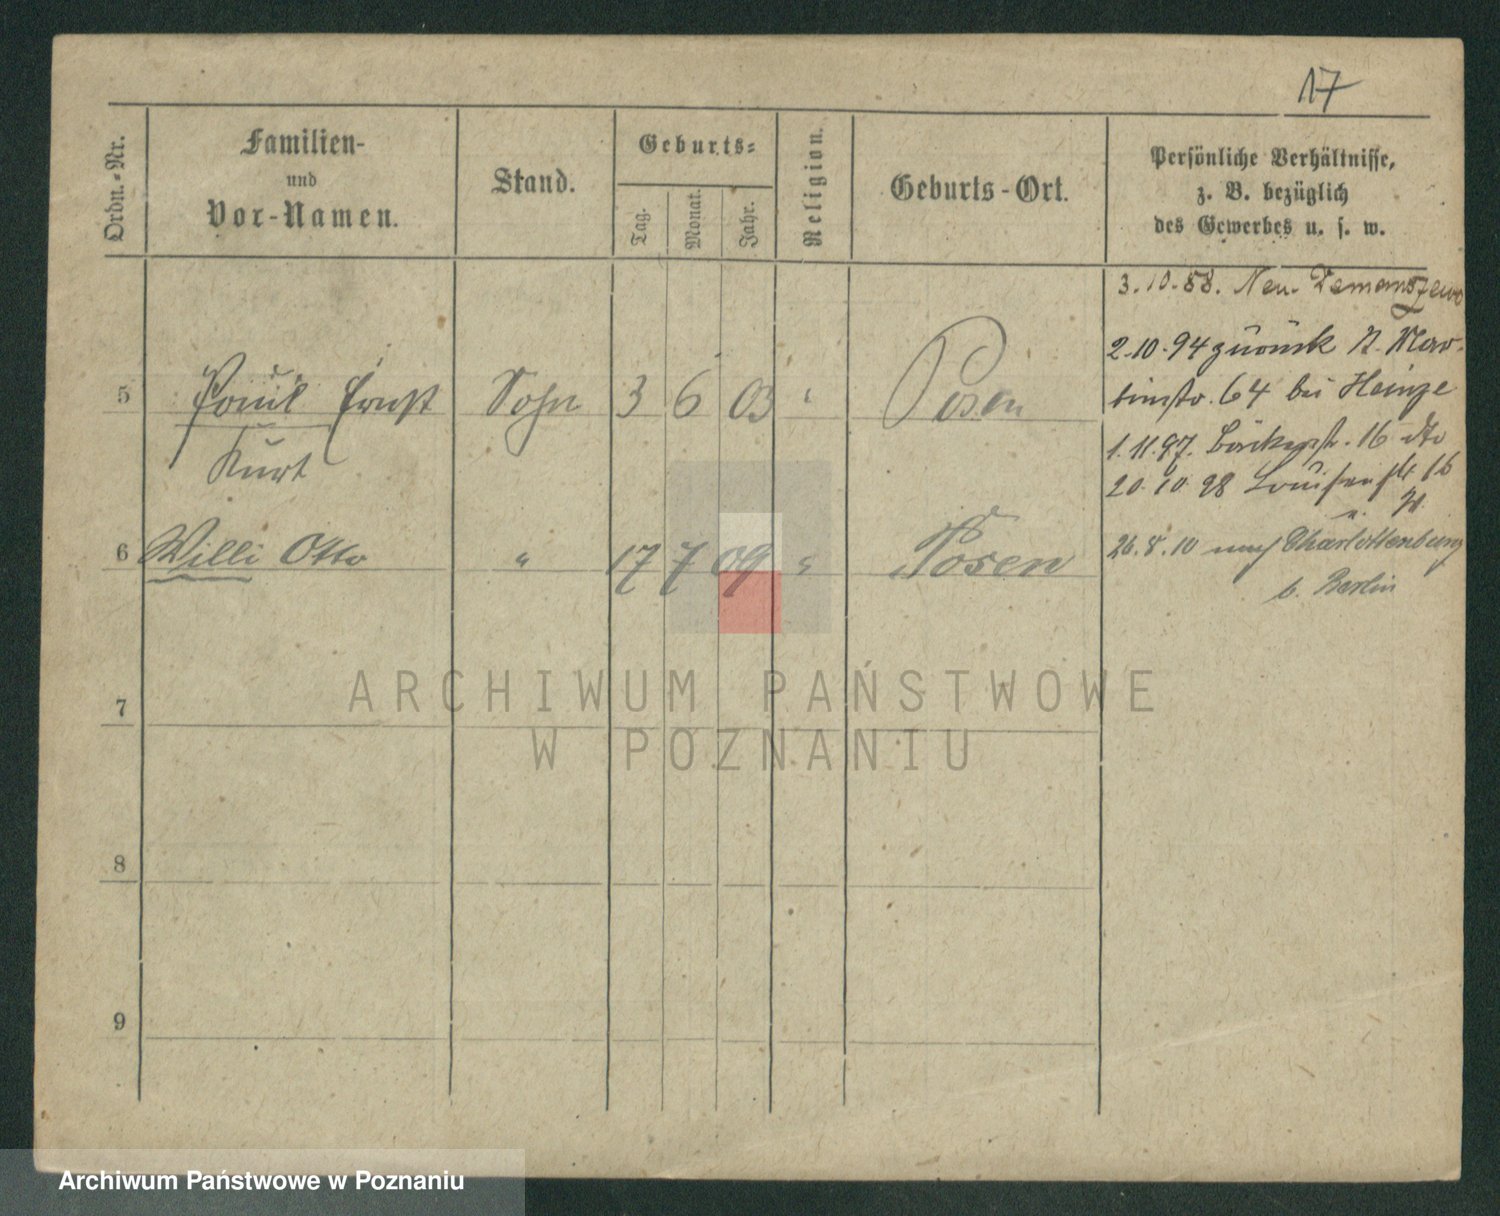 17
Ordn.-Nr.
Familien-
und
Vor-Namen.
Stand.
Geburts-
Tag.
Monat.
Jahr.
Religion.
Geburts-Ort.
Persönliche Verhältnisse,
z. B. bezüglich
des Gewerbes u. s. w.
3.10.88. Neu-Demanszewo
2.10.94 zurück N. Mar-
tinstr. 64 bei Heinze
5 Paul Ernst Sohn 3 6 03 " Posen
Kurt
1.11.97. Bäckerstr. 16 dto
20.10.98 Louisenstr 16
6 Willi Otto " 17 7 09 " Posen
26.8.10 nach Charlottenburg
b. Berlin
7
8
9
ARCHIWUM PAŃSTWOWE
W POZNANIU
Archiwum Państwowe w Poznaniu